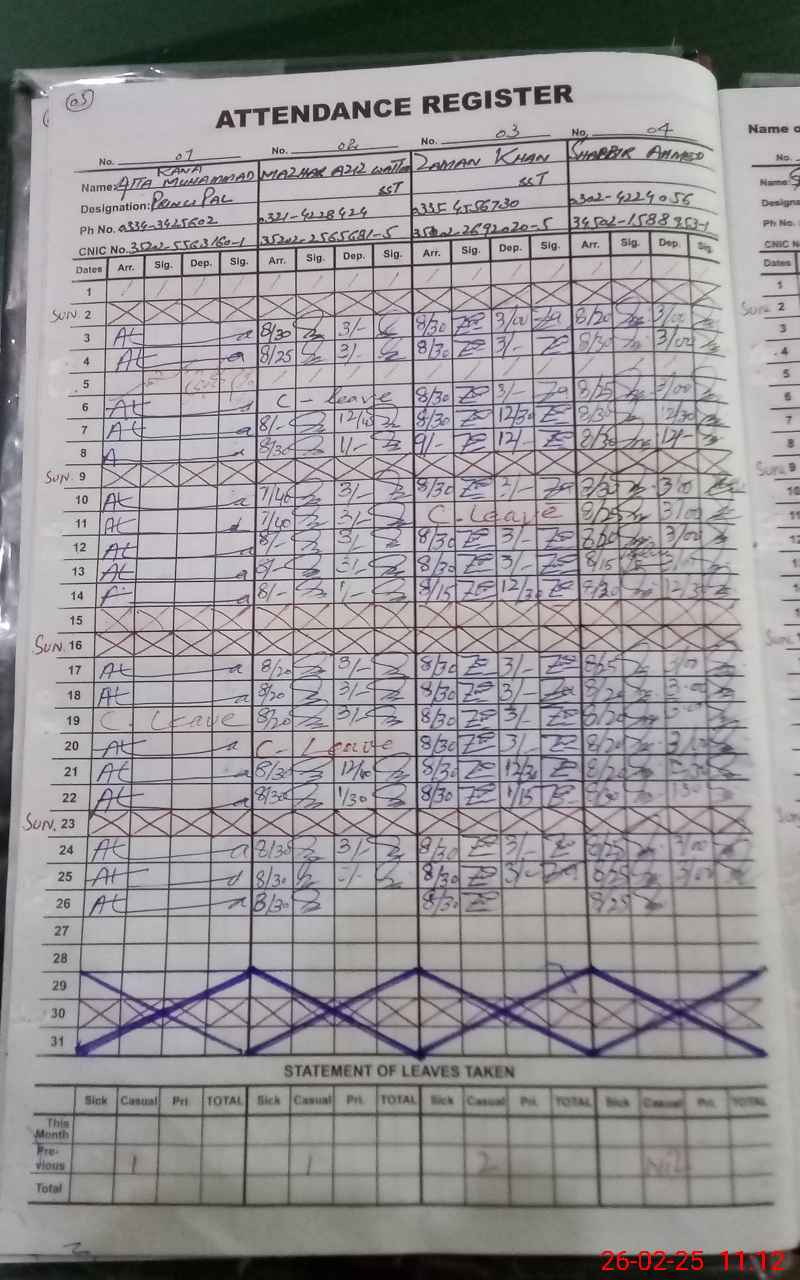 05
ATTENDANCE REGISTER
No. 01 No. 02 No. 03 No. 04 Name o
RANA
Name: ATTA MUHAMMAD MAZHAR AZIZ ZAMAN KHAN SHABBIR AHMED
Designation: PRINCIPAL SST SST Designa
Ph No. 0334-3425602 0321-4228424 0335 4556730 0302-4224056 Ph No.
CNIC No. 35202-5563160-1 35202-2565681-5 2692020-5 34502-1588953-1 CNIC N
Dates Arr. Sig. Dep. Sig. Arr. Sig. Dep. Sig. Arr. Sig. Dep. Sig. Arr. Sig. Dep. Sig. Dates
1
SUN. 2
3 At 8/30 3/- 8/30 3/00 8/20 3/00
4 At 8/25 3/- 8/30 3/- 8/30 3/00
5
6 At C - leave 8/30 3/- 8/25 3/00
7 At 8/- 12/45 8/30 12/30 8/30 12/30
8 A 8/30 1/- 9/- 12/- 8/30 12/-
SUN. 9
10 At 7/40 3/- 8/30 3/- 3/00
11 At 7/40 3/- C. Leave 8/25 3/00
12 At 8/- 3/- 8/30 3/- 8/20 3/00
13 At 8/- 3/- 8/30 3/- 8/15
14 8/- 1/- 8/15 12/30 12/30
15
SUN. 16
17 At 8/20 3/- 8/30 3/- 8/25 3/00
18 At 8/20 3/- 8/30 3/- 8/20 3.00
19 C. Leave 8/20 3/- 8/30 3/- 8/20
20 At C - Leave 8/30 3/- 8/20 3/00
21 At 8/30 12/40 8/30 12/30 8/20
22 At 8/30 1/30 8/30 1/15 8/30 130
SUN. 23
24 At 8/30 3/- 8/30 3/- 8/25 3/00
25 At 8/30 8/30 3/- 8/25 3/00
26 At 8/30 8/30 8/25
27
28
29
30
31
STATEMENT OF LEAVES TAKEN
Sick Casual Pri. TOTAL Sick Casual Pri. TOTAL Sick Casual Pri. TOTAL Sick Casual Pri. TOTAL
This
Month
Pre-
vious 1 1 2 Nil
Total
26-02-25 11:12